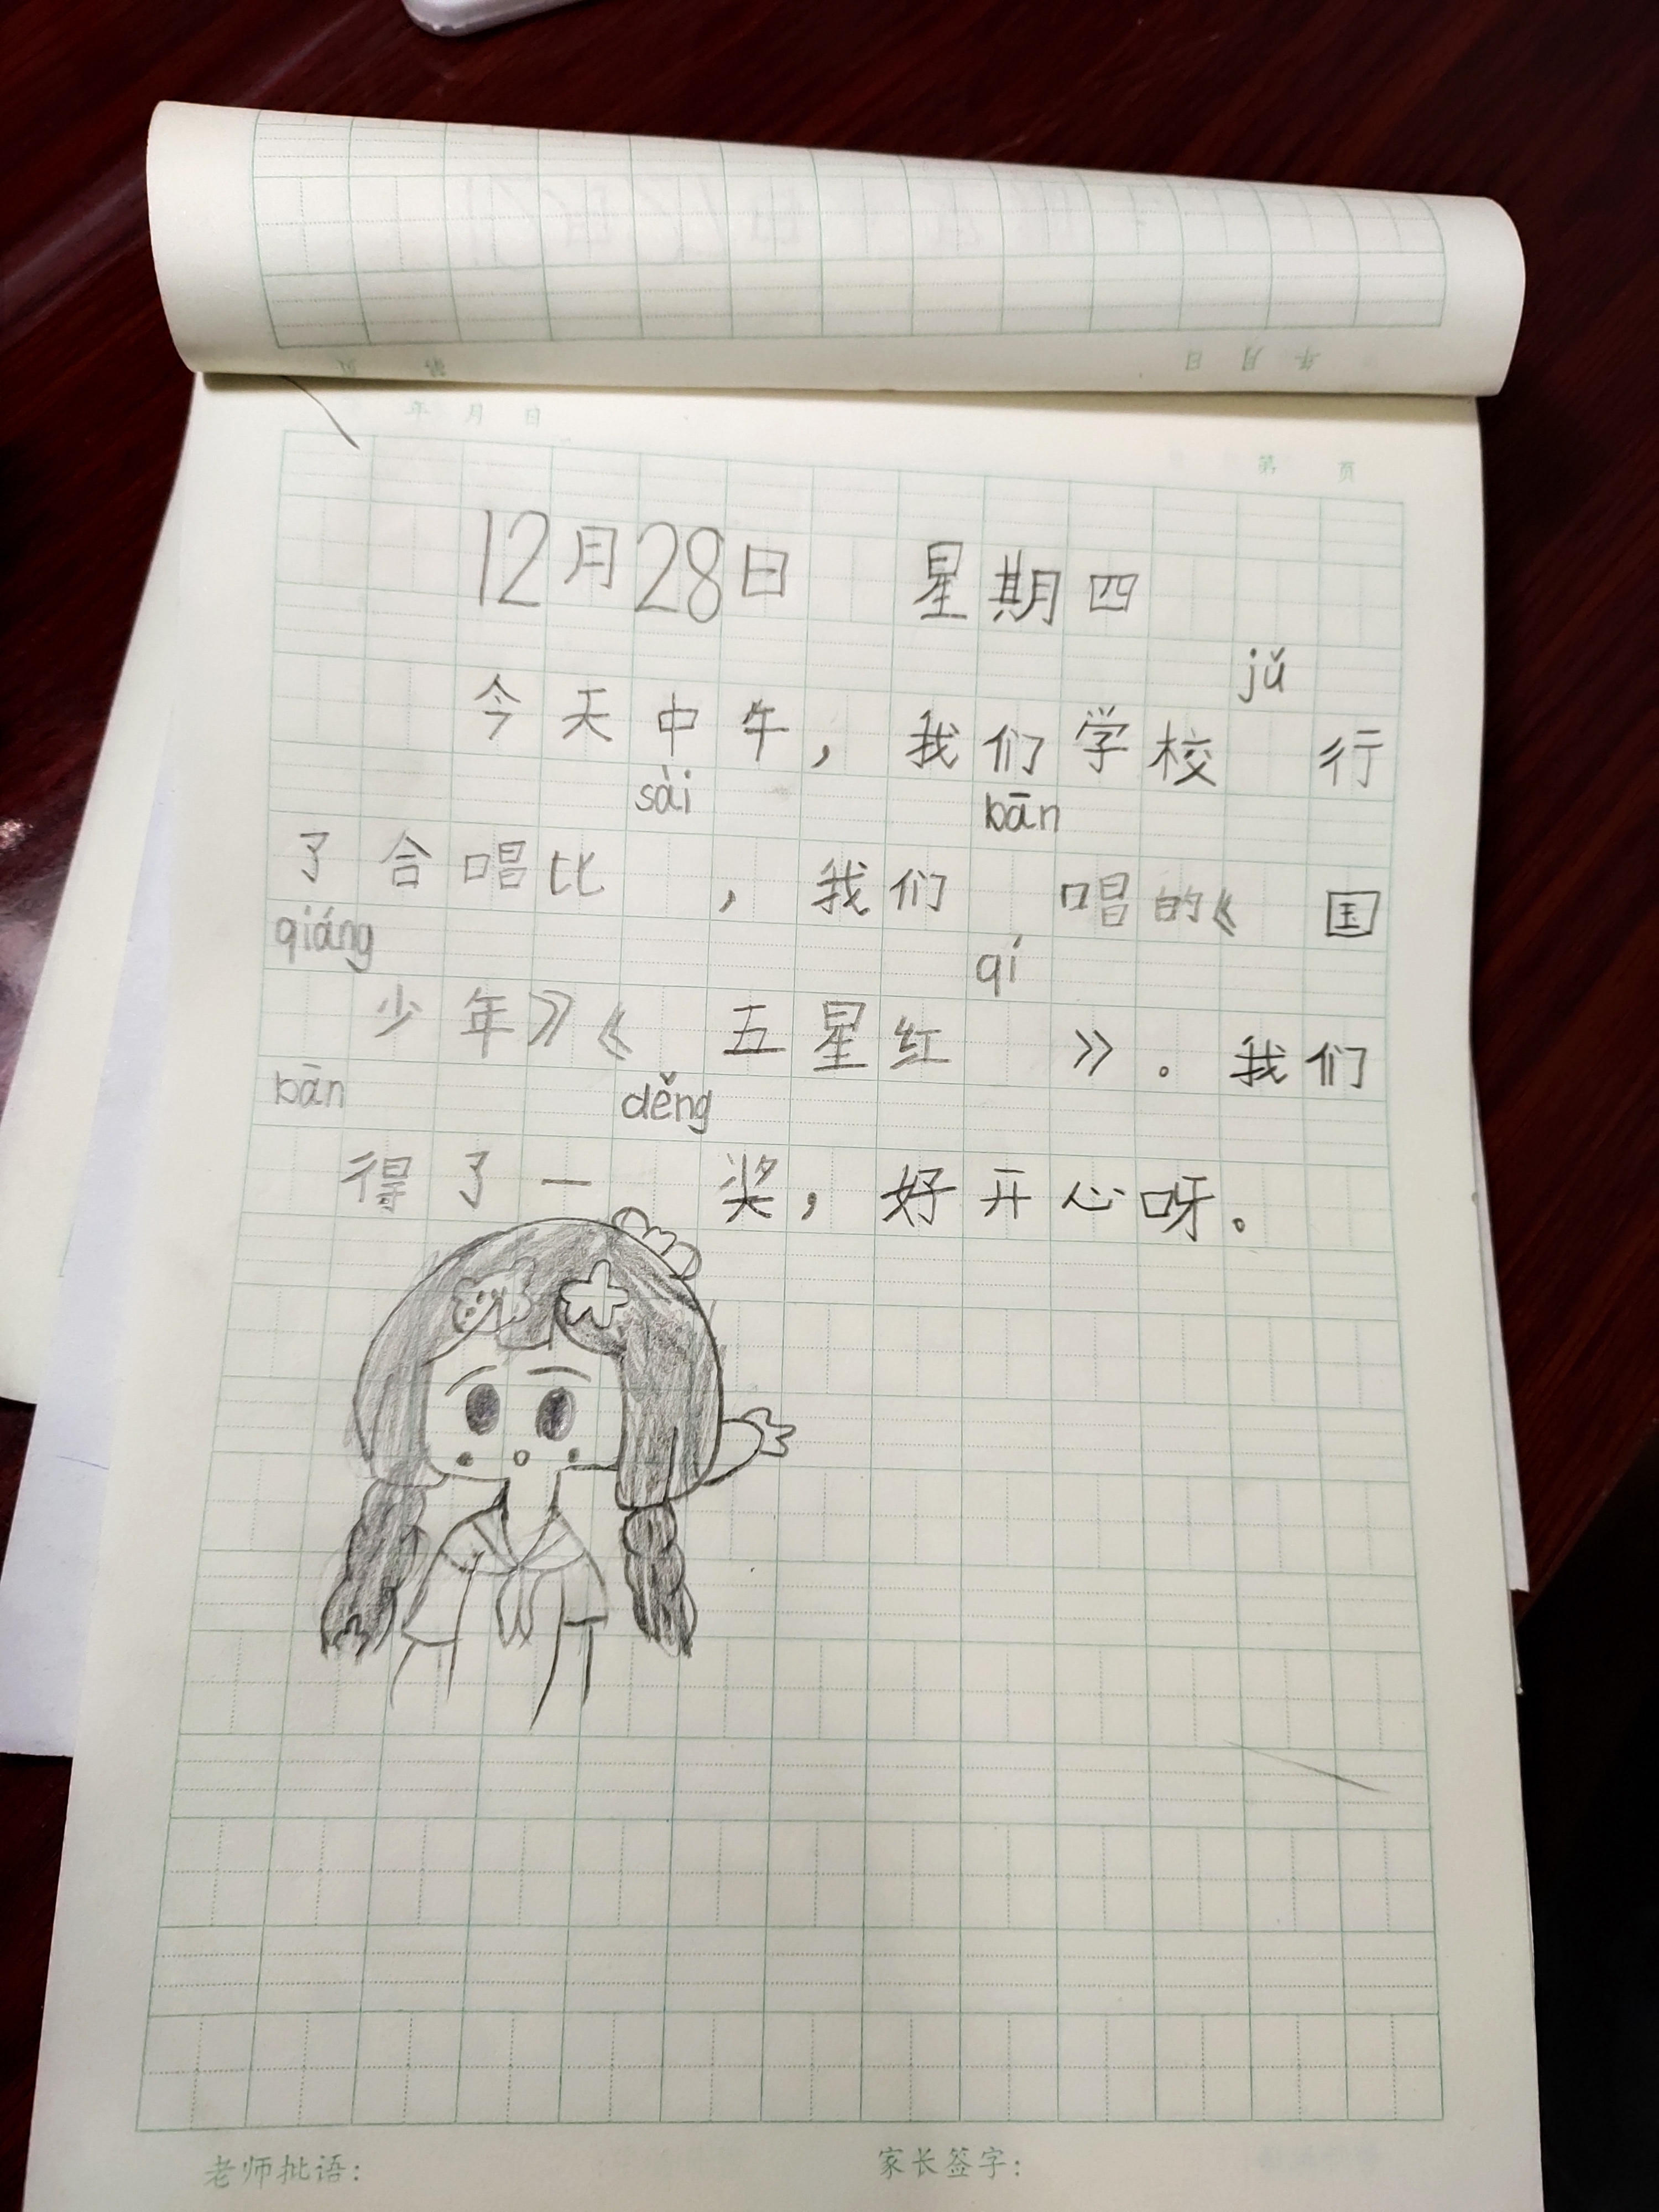 年 月 日 第 页
年 月 日 第 页
12月28日 星期四
jǔ
今天中午，我们学校 行
sài bān
了合唱比 ，我们 唱的《 国
qiáng qí
少年》《 五星红 》。我们
bān děng
得了一 奖，好开心呀。
老师批语： 家长签字：